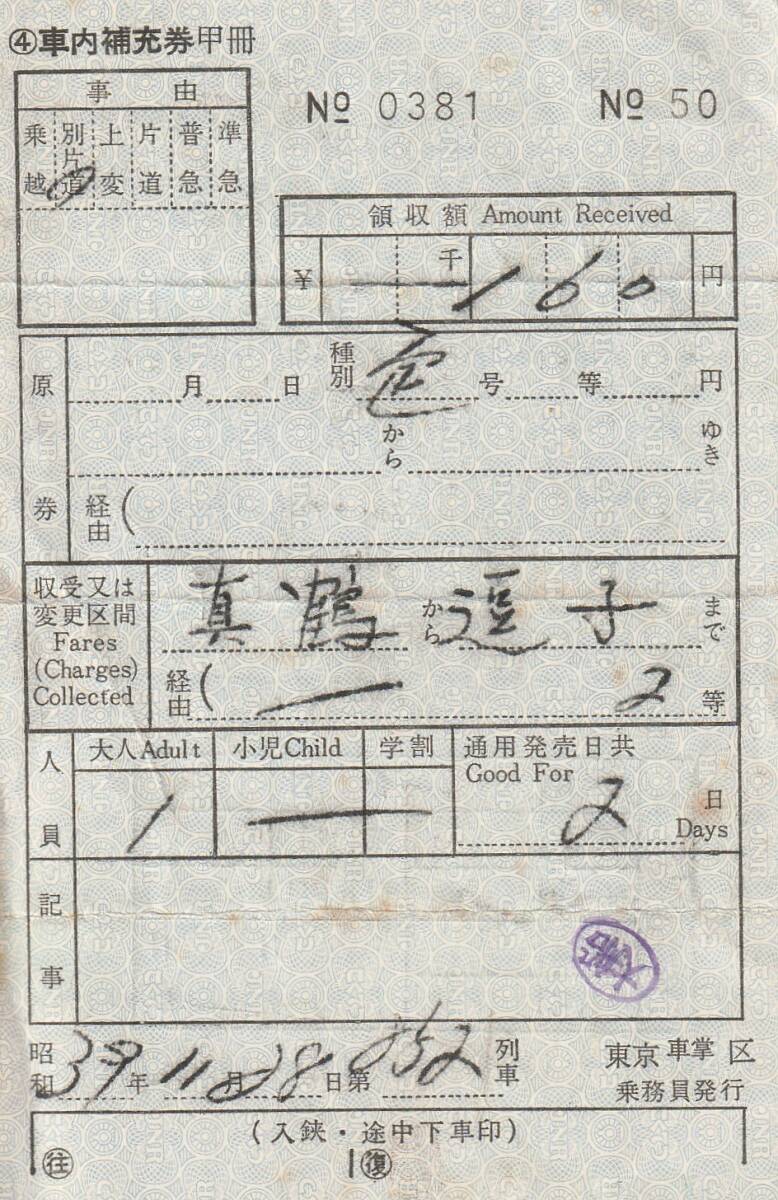 ④車内補充券甲冊
事由
№ 0381 № 50
乗越 別片道 上変 片道 普急 準急
領収額 Amount Received
¥ 千 160 円
原券
月 日 種別 号 等 円
から ゆき
経由(
収受又は変更区間
Fares (Charges) Collected
真鶴から逗子まで
経由( 2等
人員
大人Adult 小児Child 学割 通用発売日共 Good For
1 2日 Days
記事
大船
昭和39年11月28日第852列車
東京車掌区
乗務員発行
(入鋏・途中下車印)
往 復